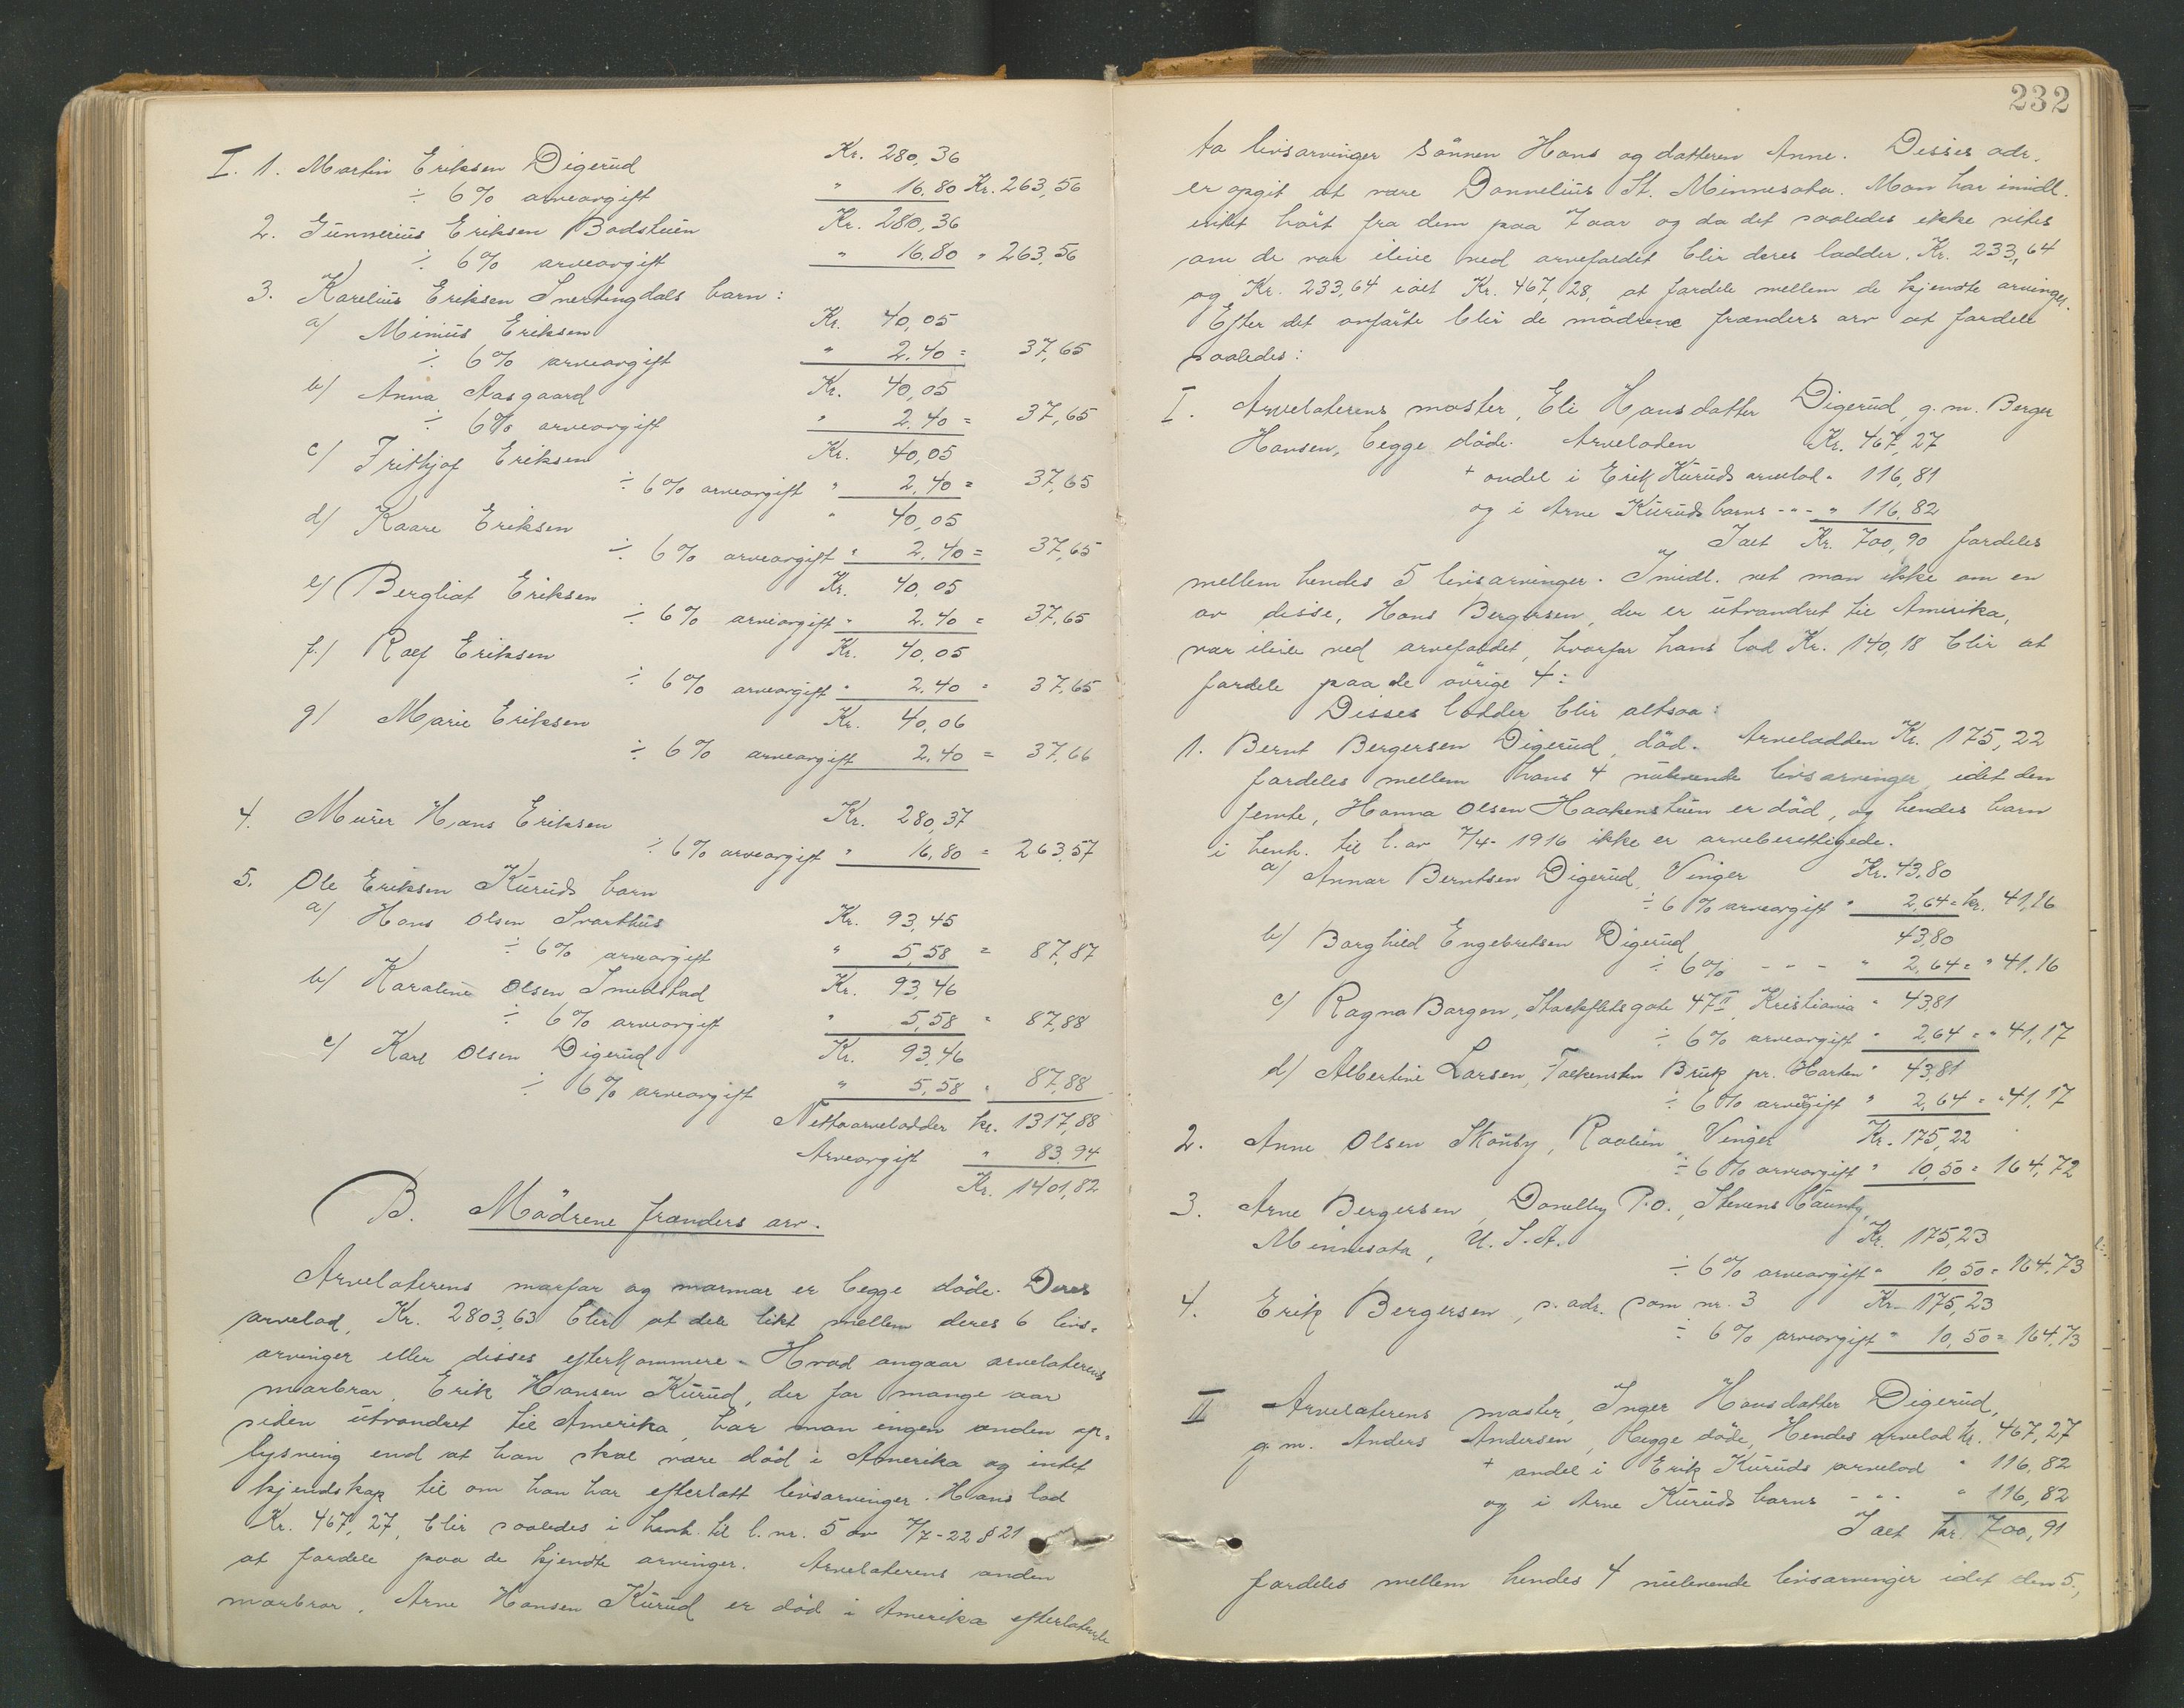 I. 1. Martin Eriksen Digerud Kr. 280,36
÷ 6% arveavgift " 16,80 Kr. 263,56
2. Gunnerius Eriksen Badstuen Kr. 280,36
÷ 6% arveavgift " 16,80 " 263,56
3. Karelius Eriksen Snertingdals barn:
a/ Minius Eriksen Kr. 40,05
÷ 6% arveavgift " 2.40 = 37,65
b/ Anna Aasgaard Kr. 40,05
÷ 6% arveavgift " 2.40 = 37,65
c/ Frithjof Eriksen Kr. 40,05
÷ 6% arveavgift " 2,40 = 37,65
d/ Kaare Eriksen " 40,05
÷ 6% arveavgift " 2.40 = 37,65
e/ Bergliot Eriksen Kr. 40,05
÷ 6% arveavgift " 2.40 = 37,65
f/ Rolf Eriksen Kr. 40,05
÷ 6% arveavgift " 2.40 = 37,65
g/ Marie Eriksen Kr. 40,06
÷ 6% arveavgift 2,40 = 37,66
4. Murer Hans Eriksen Kr. 280,37
÷ 6% arveavgift " 16,80 = 263,57
5. Ole Eriksen Kuruds barn
a/ Hans Olsen Svarthus Kr. 93,45
÷ 6% arveavgift " 5,58 = 87,87
b/ Karoline Olsen Smedstad Kr. 93,46
÷ 6% arveavgift " 5,58 " 87,88
c/ Karl Olsen Digerud Kr. 93,46
÷ 6% arveavgift " 5,58 " 87,88
Nettoarvelodder kr. 1317,88
Arveavgift " 83,94
Kr. 1401,82
B. Mödrene frænders arv.
Arvelaterens morfar og mormor er begge döde. Deres
arvelod, Kr. 2803,63 blir at dele likt mellem deres 6 livs-
arvinger eller disses efterkommere. Hvad angaar arvelaterens
morbror, Erik Hansen Kurud, der for mange aar
siden utvandret til Amerika, har man ingen anden op-
lysning end at han skal være död i Amerika og intet
kjendskap til om han har efterlatt livsarvinger. Hans lod
Kr. 467,27, blir saaledes i henh. til l. nr. 5 av 7/7-22 § 21
at fordele paa de kjendte arvinger. Arvelaterens anden
morbror, Arne Hansen Kurud er död i Amerika efterlatende
232
to livsarvinger Sönnen Hans og datteren Anne. Disses adr.
er opgit at være Donnelius St. Minnesota. Man har imidl.
intet hört fra dem paa 7 aar og da det saaledes ikke vites
om de var ilive ved arvefaldet blir deres lodder, Kr. 233,64
og Kr. 233,64 ialt Kr. 467,28, at fordele mellem de kjendte arvinger.
Efter det anförte blir de mödrene frænders arv at fordele
saaledes:
I. Arvelaterens moster, Eli Hansdatter Digerud, g.m. Berger
Hansen, begge döde. Arveloden Kr. 467,27
+ andel i Erik Kuruds arvelod " 116,81
og i Arne Kuruds barns - " - " 116,82
Ialt Kr. 700,90 fordeles
mellem hendes 5 livsarvinger. Imidl. vet man ikke om en
av disse, Hans Bergersen, der er utvandret til Amerika,
var ilive ved arvefaldet, hvorfor hans lod Kr. 140,18 blir at
fordele paa de övrige 4:
Disses lodder blir altsaa:
1. Bernt Bergersen Digerud, död. Arvelodden Kr. 175,22
fordeles mellem hans 4 nulevende livsarvinger, idet den
femte, Hanna Olsen Haakenstuen er död, og hendes barn
i henh. til l. av 7/4-1916 ikke er arveberettigede.
a/ Annar Berntsen Digerud, Vinger Kr. 43,80
÷ 6% arveavgift " 2,64 = kr. 41,16
b/ Borghild Engebretsen Digerud 43,80
÷ 6% - - - " 2,64 = " 41,16
c/ Ragna Borgen, Storkfletsgate 47 II, Kristiania " 43,81
÷ 6% arveavgift " 2,64 = " 41,17
d/ Albertine Larsen, Falkensten Bruk pr. Horten " 43,81
÷ 6% arveavgift " 2,64 = " 41,17
2. Anne Olsen Skönby, Roalien, Vinger Kr. 175,22
÷ 6% arveavgift " 10,50 = 164,72
3. Arne Bergersen, Donelley P.O., Stevens County,
Minnesota, U.S.A. Kr. 175,23
÷ 6% arveavgift " 10,50 = 164,73
4. Erik Bergersen, s. adr. som nr. 3 Kr. 175,23
÷ 6% arveavgift " 10,50 = 164,73
II Arvelaterens moster, Inger Hansdatter Digerud,
g.m. Anders Andersen, begge döde, Hendes arvelod kr. 467,27
+ andel i Erik Kuruds arvelod " 116,82
og i Arne Kuruds barns - " - " 116,82
Ialt kr. 700,91
fordeles mellem hendes 4 nulevende livsarvinger idet den 5.,